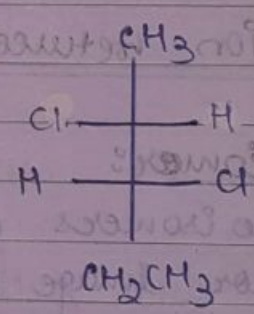 CH3
Cl H
H Cl
CH2CH3